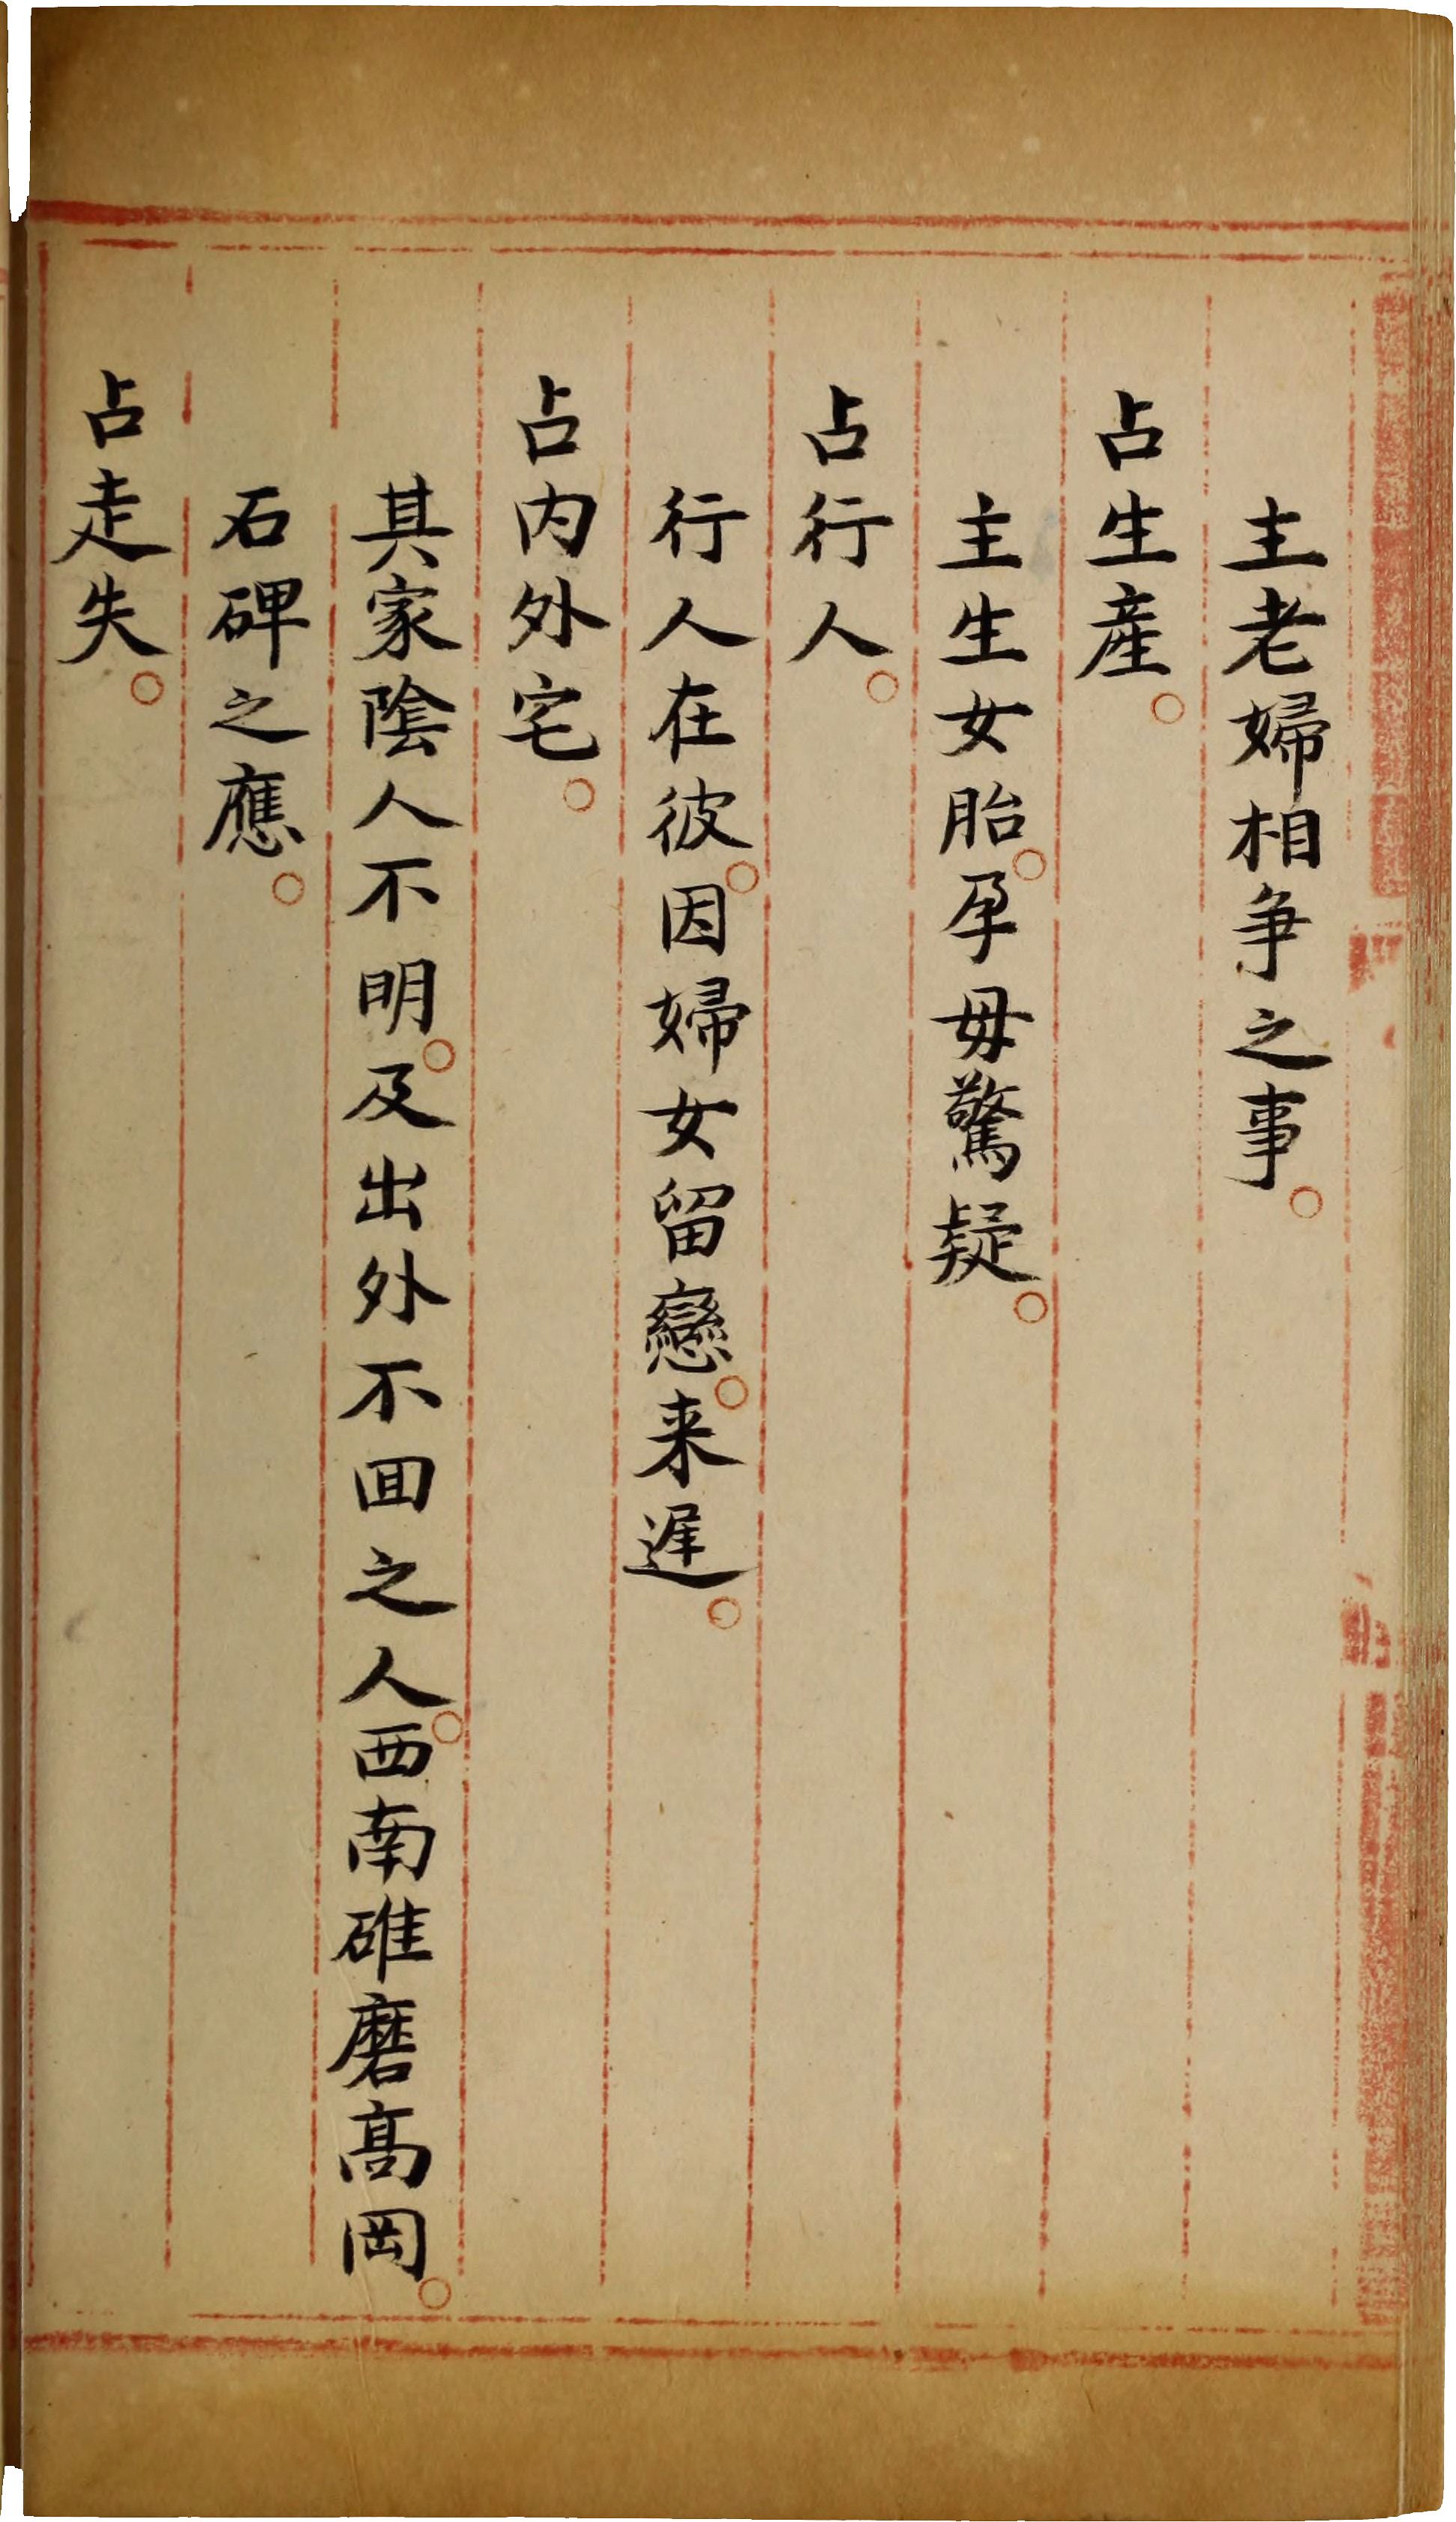 主老婦相爭之事。
占生產。
主生女胎。孕毋驚疑。
占行人。
行人在彼。因婦女留戀。来遲。
占內外宅。
其家陰人不明。及出外不囬之人。西南碓磨高岡。
石碑之應。
占走失。